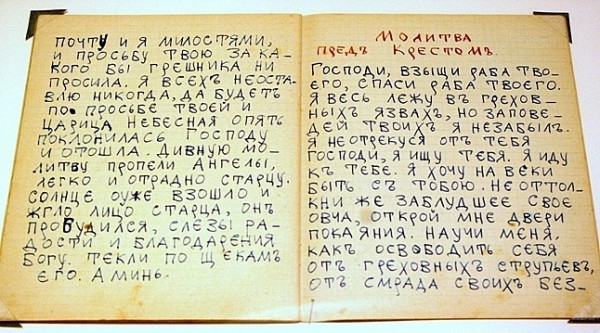 почту и я милостями,
и просьбу твою за ка-
кого бы грешника ни
просила. Я всехъ неоста-
влю никогда, да будетъ
по просьбе твоей и
Царица Небесная опять
поклонилась Господу
и отошла. Дивную мо-
литву пропели Ангелы,
легко и отрадно старцу.
Солнце оуже взошло и
жгло лицо старца, онъ
пробудился, слезы ра-
дости и благодарения
Богу. текли по щекамъ
его. Аминь.
Молитва
предъ Крестомъ.
Господи, взыщи раба тво-
его, спаси раба твоего.
Я весь лежу въ грехов-
ныхъ язвахъ, но запове-
дей твоихъ я незабылъ.
Я неотрекуся отъ тебя
Господи, я ищу тебя. Я иду
къ тебе. Я хочу на веки
быть съ тобою. Не оттол-
кни же заблудшее свое
овча, открой мне двери
покаяния. Научи меня,
какъ освободить себя
отъ греховныхъ струпьевъ,
отъ смрада своихъ без-